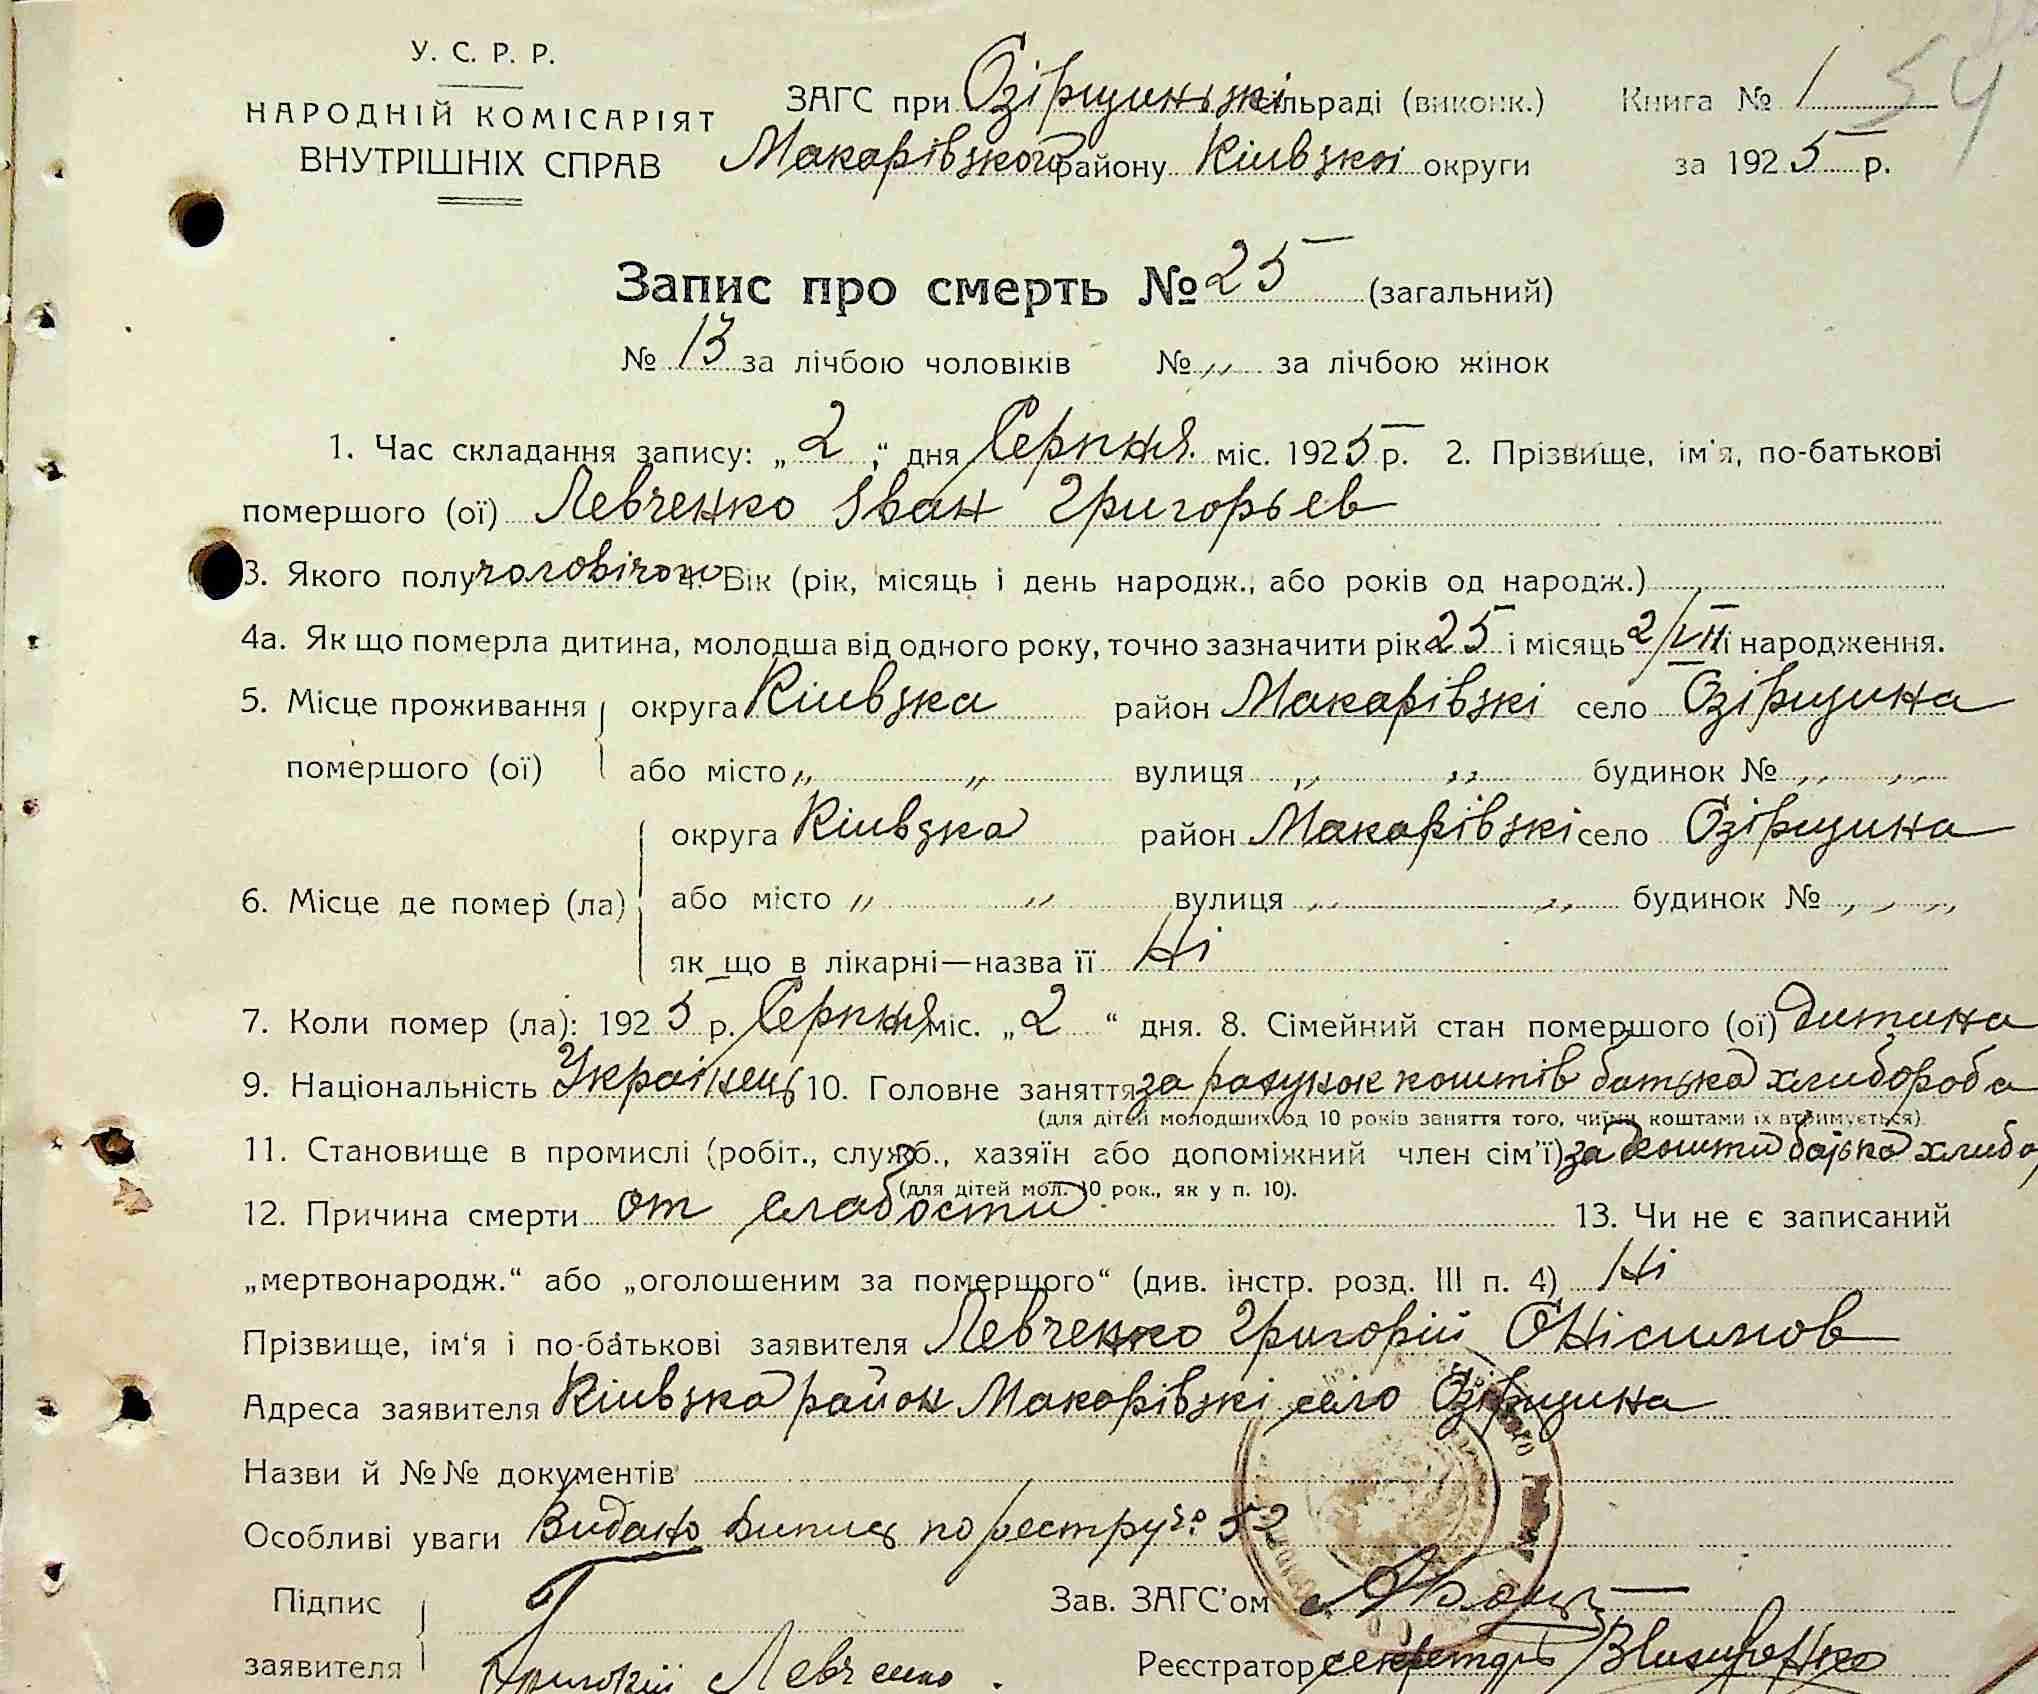 У. С. Р. Р.
НАРОДНІЙ КОМІСАРІЯТ
ВНУТРІШНІХ СПРАВ
ЗАГС при Озірщинські сільраді (виконк.) Книга № 1 54
Макарівзкого району Кіивзкоі округи за 1925 р.
Запис про смерть № 25 (загальний)
№ 13 за лічбою чоловіків № „ за лічбою жінок
1. Час складання запису: „2„“ дня Серпня міс. 1925 р. 2. Прізвище, ім'я, по-батькові
помершого (ої) Левченко Іван Григорьев
3. Якого полу чоловічого 4. Вік (рік, місяць і день народж., або років од народж.)
4а. Як що померла дитина, молодша від одного року, точно зазначити рік 25 і місяць 2/VII її народження.
5. Місце проживання округа Кіивзка район Макарівзкі село Озірщина
помершого (ої) або місто „ „ вулиця „ „ будинок № „ „
округа Кіивзка район Макарівзкі село Озірщина
6. Місце де помер (ла) або місто „ „ вулиця „ „ будинок № „ „ „
як що в лікарні—назва її Ні
7. Коли помер (ла): 1925 р. Серпня міс. „2“ дня. 8. Сімейний стан помершого (ої) Дитина
9. Національність Українець 10. Головне заняття за рахунок коштів батька хлибороба
(для дітей молодших од 10 років заняття того, чиїми коштами їх втримується)
11. Становище в промислі (робіт., служб., хазяїн або допоміжний член сім'ї) за кошти батька хлибо
(для дітей мол. 10 рок., як у п. 10).
12. Причина смерти от слабости 13. Чи не є записаний
„мертвонародж.“ або „оголошеним за померщого“ (див. інстр. розд. III п. 4) Ні
Прізвище, ім'я і по-батькові заявителя Левченко Григорій Онісимов
Адреса заявителя Кіивзка район Макорівзкі село Озірщина
Назви й №№ документів
Особливі уваги Видано Випись по реестру 52
Підпис Зав. ЗАГС'ом
заявителя Григорій Левченко. Реєстратор секретарь